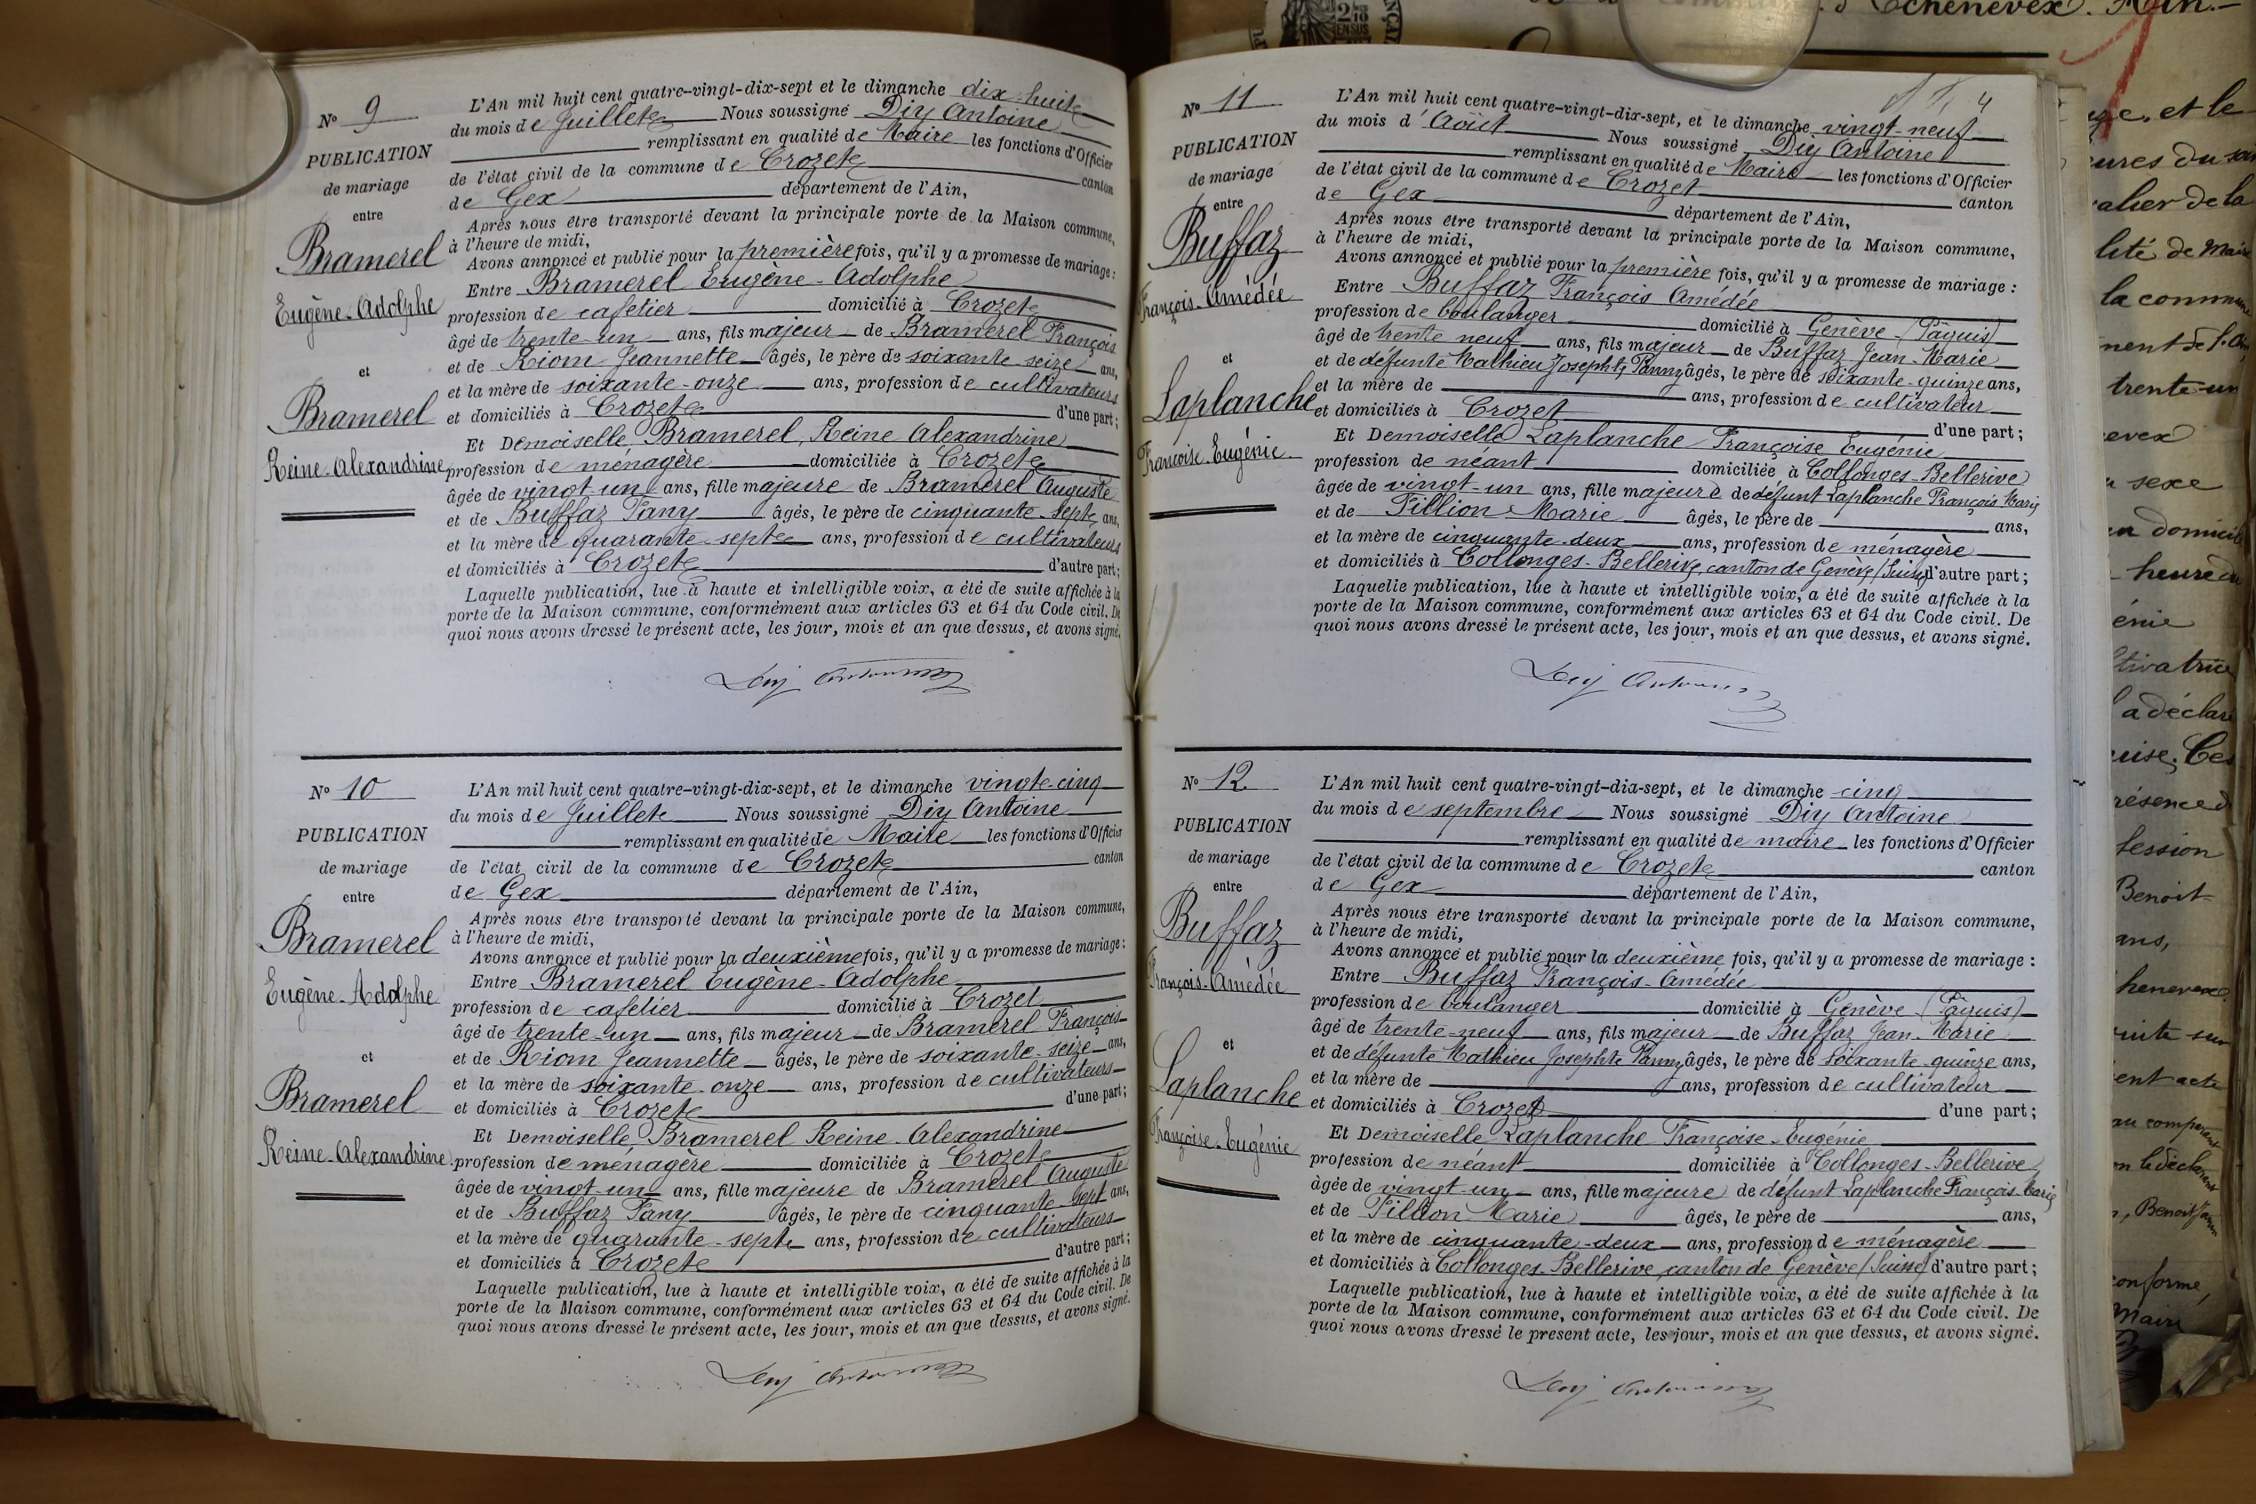 Nº 9
PUBLICATION
de mariage
entre
Bramerel
Eugène-Adolphe
et
Bramerel
Reine-Alexandrine
L'An mil huit cent quatre-vingt-dix-sept et le dimanche dix-huit
du mois de Juillet Nous soussigné Diy Antoine
remplissant en qualité de Maire les fonctions d'Officier
de l'état civil de la commune de Crozet canton
de Gex département de l'Ain,
Après nous être transporté devant la principale porte de la Maison commune,
à l'heure de midi,
Avons annoncé et publié pour la première fois, qu'il y a promesse de mariage :
Entre Bramerel Eugène-Adolphe
profession de cafetier domicilié à Crozet
âgé de trente-un ans, fils majeur de Bramerel François
et de Riom Jeannette âgés, le père de soixante-seize ans,
et la mère de soixante-onze ans, profession de cultivateurs
et domiciliés à Crozet d'une part ;
Et Demoiselle Bramerel, Reine Alexandrine
profession de ménagère domiciliée à Crozet
âgée de vingt-un ans, fille majeure de Bramerel Auguste
et de Buffaz Fany âgés, le père de cinquante-sept ans,
et la mère de quarante-sept ans, profession de cultivateurs
et domiciliés à Crozet d'autre part ;
Laquelle publication, lue à haute et intelligible voix, a été de suite affichée à la
porte de la Maison commune, conformément aux articles 63 et 64 du Code civil. De
quoi nous avons dressé le présent acte, les jour, mois et an que dessus, et avons signé.
Diy Antoine
Nº 10
PUBLICATION
de mariage
entre
Bramerel
Eugène-Adolphe
et
Bramerel
Reine-Alexandrine
L'An mil huit cent quatre-vingt-dix-sept, et le dimanche vingt-cinq
du mois de Juillet Nous soussigné Diy Antoine
remplissant en qualité de Maire les fonctions d'Officier
de l'état civil de la commune de Crozet canton
de Gex département de l'Ain,
Après nous être transporté devant la principale porte de la Maison commune,
à l'heure de midi,
Avons annoncé et publié pour la deuxième fois, qu'il y a promesse de mariage :
Entre Bramerel Eugène-Adolphe
profession de cafetier domicilié à Crozet
âgé de trente-un ans, fils majeur de Bramerel François
et de Riom Jeannette âgés, le père de soixante-seize ans,
et la mère de soixante-onze ans, profession de cultivateurs
et domiciliés à Crozet d'une part ;
Et Demoiselle Bramerel Reine-Alexandrine
profession de ménagère domiciliée à Crozet
âgée de vingt-un ans, fille majeure de Bramerel Auguste
et de Buffaz Fany âgés, le père de cinquante-sept ans,
et la mère de quarante-sept ans, profession de cultivateurs
et domiciliés à Crozet d'autre part ;
Laquelle publication, lue à haute et intelligible voix, a été de suite affichée à la
porte de la Maison commune, conformément aux articles 63 et 64 du Code civil. De
quoi nous avons dressé le présent acte, les jour, mois et an que dessus, et avons signé.
Diy Antoine
4
Nº 11
PUBLICATION
de mariage
entre
Buffaz
François-Amédée
et
Laplanche
Françoise-Eugénie
L'An mil huit cent quatre-vingt-dix-sept, et le dimanche vingt-neuf
du mois d'Août Nous soussigné Diy Antoine
remplissant en qualité de Maire les fonctions d'Officier
de l'état civil de la commune de Crozet canton
de Gex département de l'Ain,
Après nous être transporté devant la principale porte de la Maison commune,
à l'heure de midi,
Avons annoncé et publié pour la première fois, qu'il y a promesse de mariage :
Entre Buffaz François Amédée
profession de boulanger domicilié à Genève (Pâquis)
âgé de trente neuf ans, fils majeur de Buffaz Jean-Marie
et de défunte Mathieu Josephte Fanny âgés, le père de soixante-quinze ans,
et la mère de ans, profession de cultivateur
et domiciliés à Crozet d'une part ;
Et Demoiselle Laplanche Françoise Eugénie
profession de néant domiciliée à Collonges-Bellerive
âgée de vingt-un ans, fille majeure de défunt Laplanche François Marie
et de Fillion Marie âgés, le père de ans,
et la mère de cinquante-deux ans, profession de ménagère
et domiciliés à Collonges-Bellerive, canton de Genève (Suisse) d'autre part ;
Laquelle publication, lue à haute et intelligible voix, a été de suite affichée à la
porte de la Maison commune, conformément aux articles 63 et 64 du Code civil. De
quoi nous avons dressé le présent acte, les jour, mois et an que dessus, et avons signé.
Diy Antoine
Nº 12
PUBLICATION
de mariage
entre
Buffaz
François-Amédée
et
Laplanche
Françoise-Eugénie
L'An mil huit cent quatre-vingt-dix-sept, et le dimanche cinq
du mois de septembre Nous soussigné Diy Antoine
remplissant en qualité de maire les fonctions d'Officier
de l'état civil de la commune de Crozet canton
de Gex département de l'Ain,
Après nous être transporté devant la principale porte de la Maison commune,
à l'heure de midi,
Avons annoncé et publié pour la deuxième fois, qu'il y a promesse de mariage :
Entre Buffaz François-Amédée
profession de boulanger domicilié à Genève (Pâquis)
âgé de trente-neuf ans, fils majeur de Buffaz Jean-Marie
et de défunte Mathieu Josephte Fanny âgés, le père de soixante-quinze ans,
et la mère de ans, profession de cultivateur
et domiciliés à Crozet d'une part ;
Et Demoiselle Laplanche Françoise-Eugénie
profession de néant domiciliée à Collonges-Bellerive
âgée de vingt-un ans, fille majeure de défunt Laplanche François-Marie
et de Fillion Marie âgés, le père de ans,
et la mère de cinquante-deux ans, profession de ménagère
et domiciliés à Collonges-Bellerive, canton de Genève (Suisse) d'autre part ;
Laquelle publication, lue à haute et intelligible voix, a été de suite affichée à la
porte de la Maison commune, conformément aux articles 63 et 64 du Code civil. De
quoi nous avons dressé le présent acte, les jour, mois et an que dessus, et avons signé.
Diy Antoine
Echenevex. Ain.
et le
de la
lité de Maire
la commune
trente-un
sexe
heure du
a déclaré
Benoit
ans,
conforme,
Maire